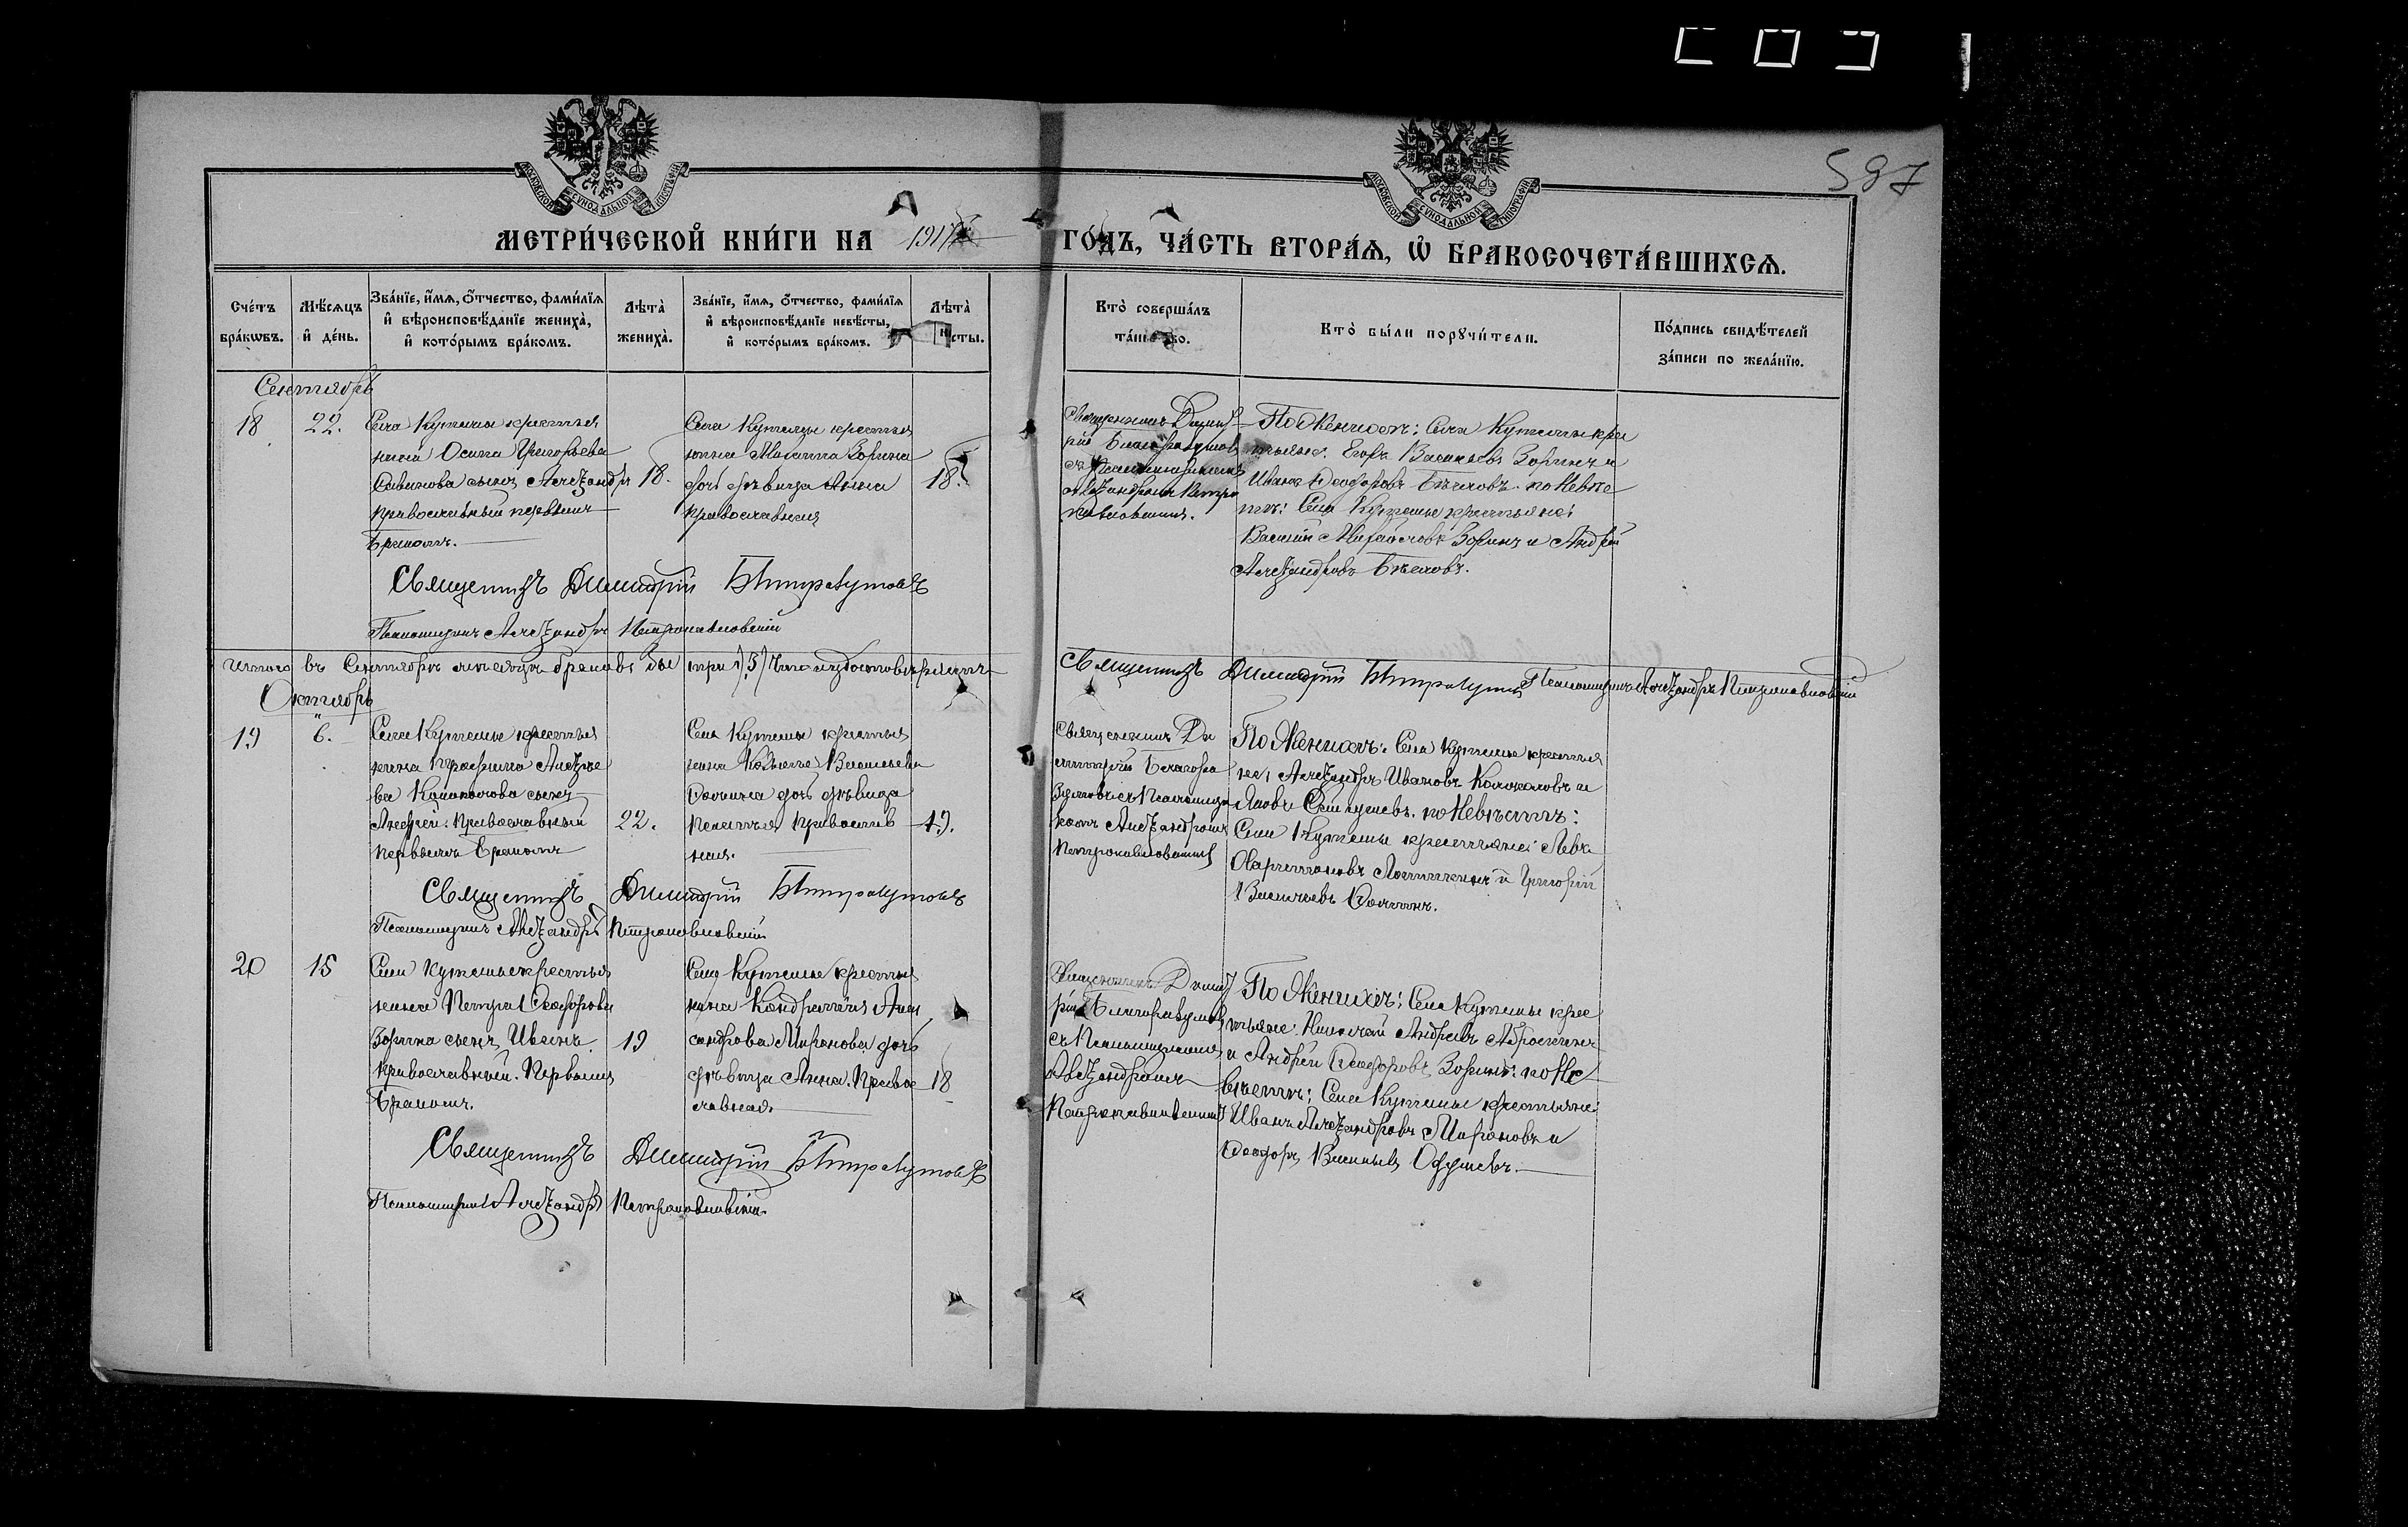 587
МОСКОВСКОЙ СѴНОДАЛЬНОЙ ТИПОГРАФІИ
МОСКОВСКОЙ СѴНОДАЛЬНОЙ ТИПОГРАФІИ
МЕТРИ́ЧЕСКОЙ КНИ́ГИ НА 1917 ГО́ДЪ, ЧА́СТЬ ВТОРА́Ѧ, Ѽ БРАКОСОЧЕТА́ВШИХСѦ.
Сче́тъ бра́кѡвъ.
Мѣ́сѧцъ и҆ де́нь.
Зва́нїе, и҆́мѧ, ѻ҆́тчество, фами́лїѧ
и҆ вѣроисповѣ́данїе жениха̀,
и҆ кото́рымъ бра́комъ.
Лѣта̀
жениха̀.
Зва́нїе, и҆́мѧ, ѻ҆́тчество, фами́лїѧ
и҆ вѣроисповѣ́данїе невѣ́сты,
и҆ кото́рымъ бра́комъ.
Лѣта̀
Кто̀ соверша́лъ
Кто̀ бы́ли порꙋчи́тели.
По́дпись свидѣ́телей
за́писи по жела́нїю.
Сентябрь
18
22.
Села Кутемы крестья
нина Осипа Григорьева
Савинова сынъ Александръ
православный первымъ
бракомъ.
18.
Села Кутемы крестья
нина Зорина
дочь дѣвица Анна
православная
18.
Священникъ Димит
рій Благоразумовъ
съ Псаломщикомъ
Александромъ Петро
павловскимъ.
По Женихѣ: Села Кутемы кре
стьяне: Егоръ Васильевъ Зоринъ и
Иванъ Ѳеодоровъ Бѣловъ. по Невѣс
тѣ: Села Кутемы крестьяне:
Василій Зоринъ и Андрей
Александровъ Бѣловъ.
Священникъ Димитрій Благоразумовъ
Псаломщикъ Александръ Петропавловскій
Итого въ Сентябрѣ мѣсяцѣ браковъ три (3) что и удостовѣряемъ
Священникъ Димитрій Благоразумовъ Псаломщикъ Александръ Петропавловскій
Октябрь
19
6.
Села Кутемы крестья
нина Алексѣе
ва сынъ
Андрей православный
первымъ бракомъ
22.
Села Кутемы крестья
нина Козьмы Васильева
дочь дѣвица
Пелагѣя православ
ная.
19.
Священникъ Ди
митрій Благора
зумовъ съ Псаломщи
комъ Александромъ
Петропавловскимъ
По Женихѣ: Села Кутемы крестья
не: Александръ Ивановъ и
Яковъ по Невѣстѣ:
Села Кутемы крестьяне: Левъ
Харитоновъ и Григорій
Васильевъ
Священникъ Димитрій Благоразумовъ
Псаломщикъ Александръ Петропавловскій
20
15
Села Кутемы крестья
нина Петра Ѳеодорова
Зорина сынъ Иванъ
православный. Первымъ
бракомъ.
19
Села Кутемы крестья
нина Кондратія Алек
сандрова Миронова дочь
дѣвица Анна. Право
славная.
18
Священникъ Димит
рій Благоразумовъ
съ Псаломщикомъ
Александромъ
Петропавловскимъ
По Женихѣ: Села Кутемы крес
тьяне: Николай Андреевъ Аброскинъ
и Андрей Ѳеодоровъ Зоринъ: по Не
вѣстѣ: Села Кутемы крестьяне:
Иванъ Александровъ Мироновъ и
Ѳеодоръ Васильевъ
Священникъ Димитрій Благоразумовъ
Псаломщикъ Александръ Петропавловскій